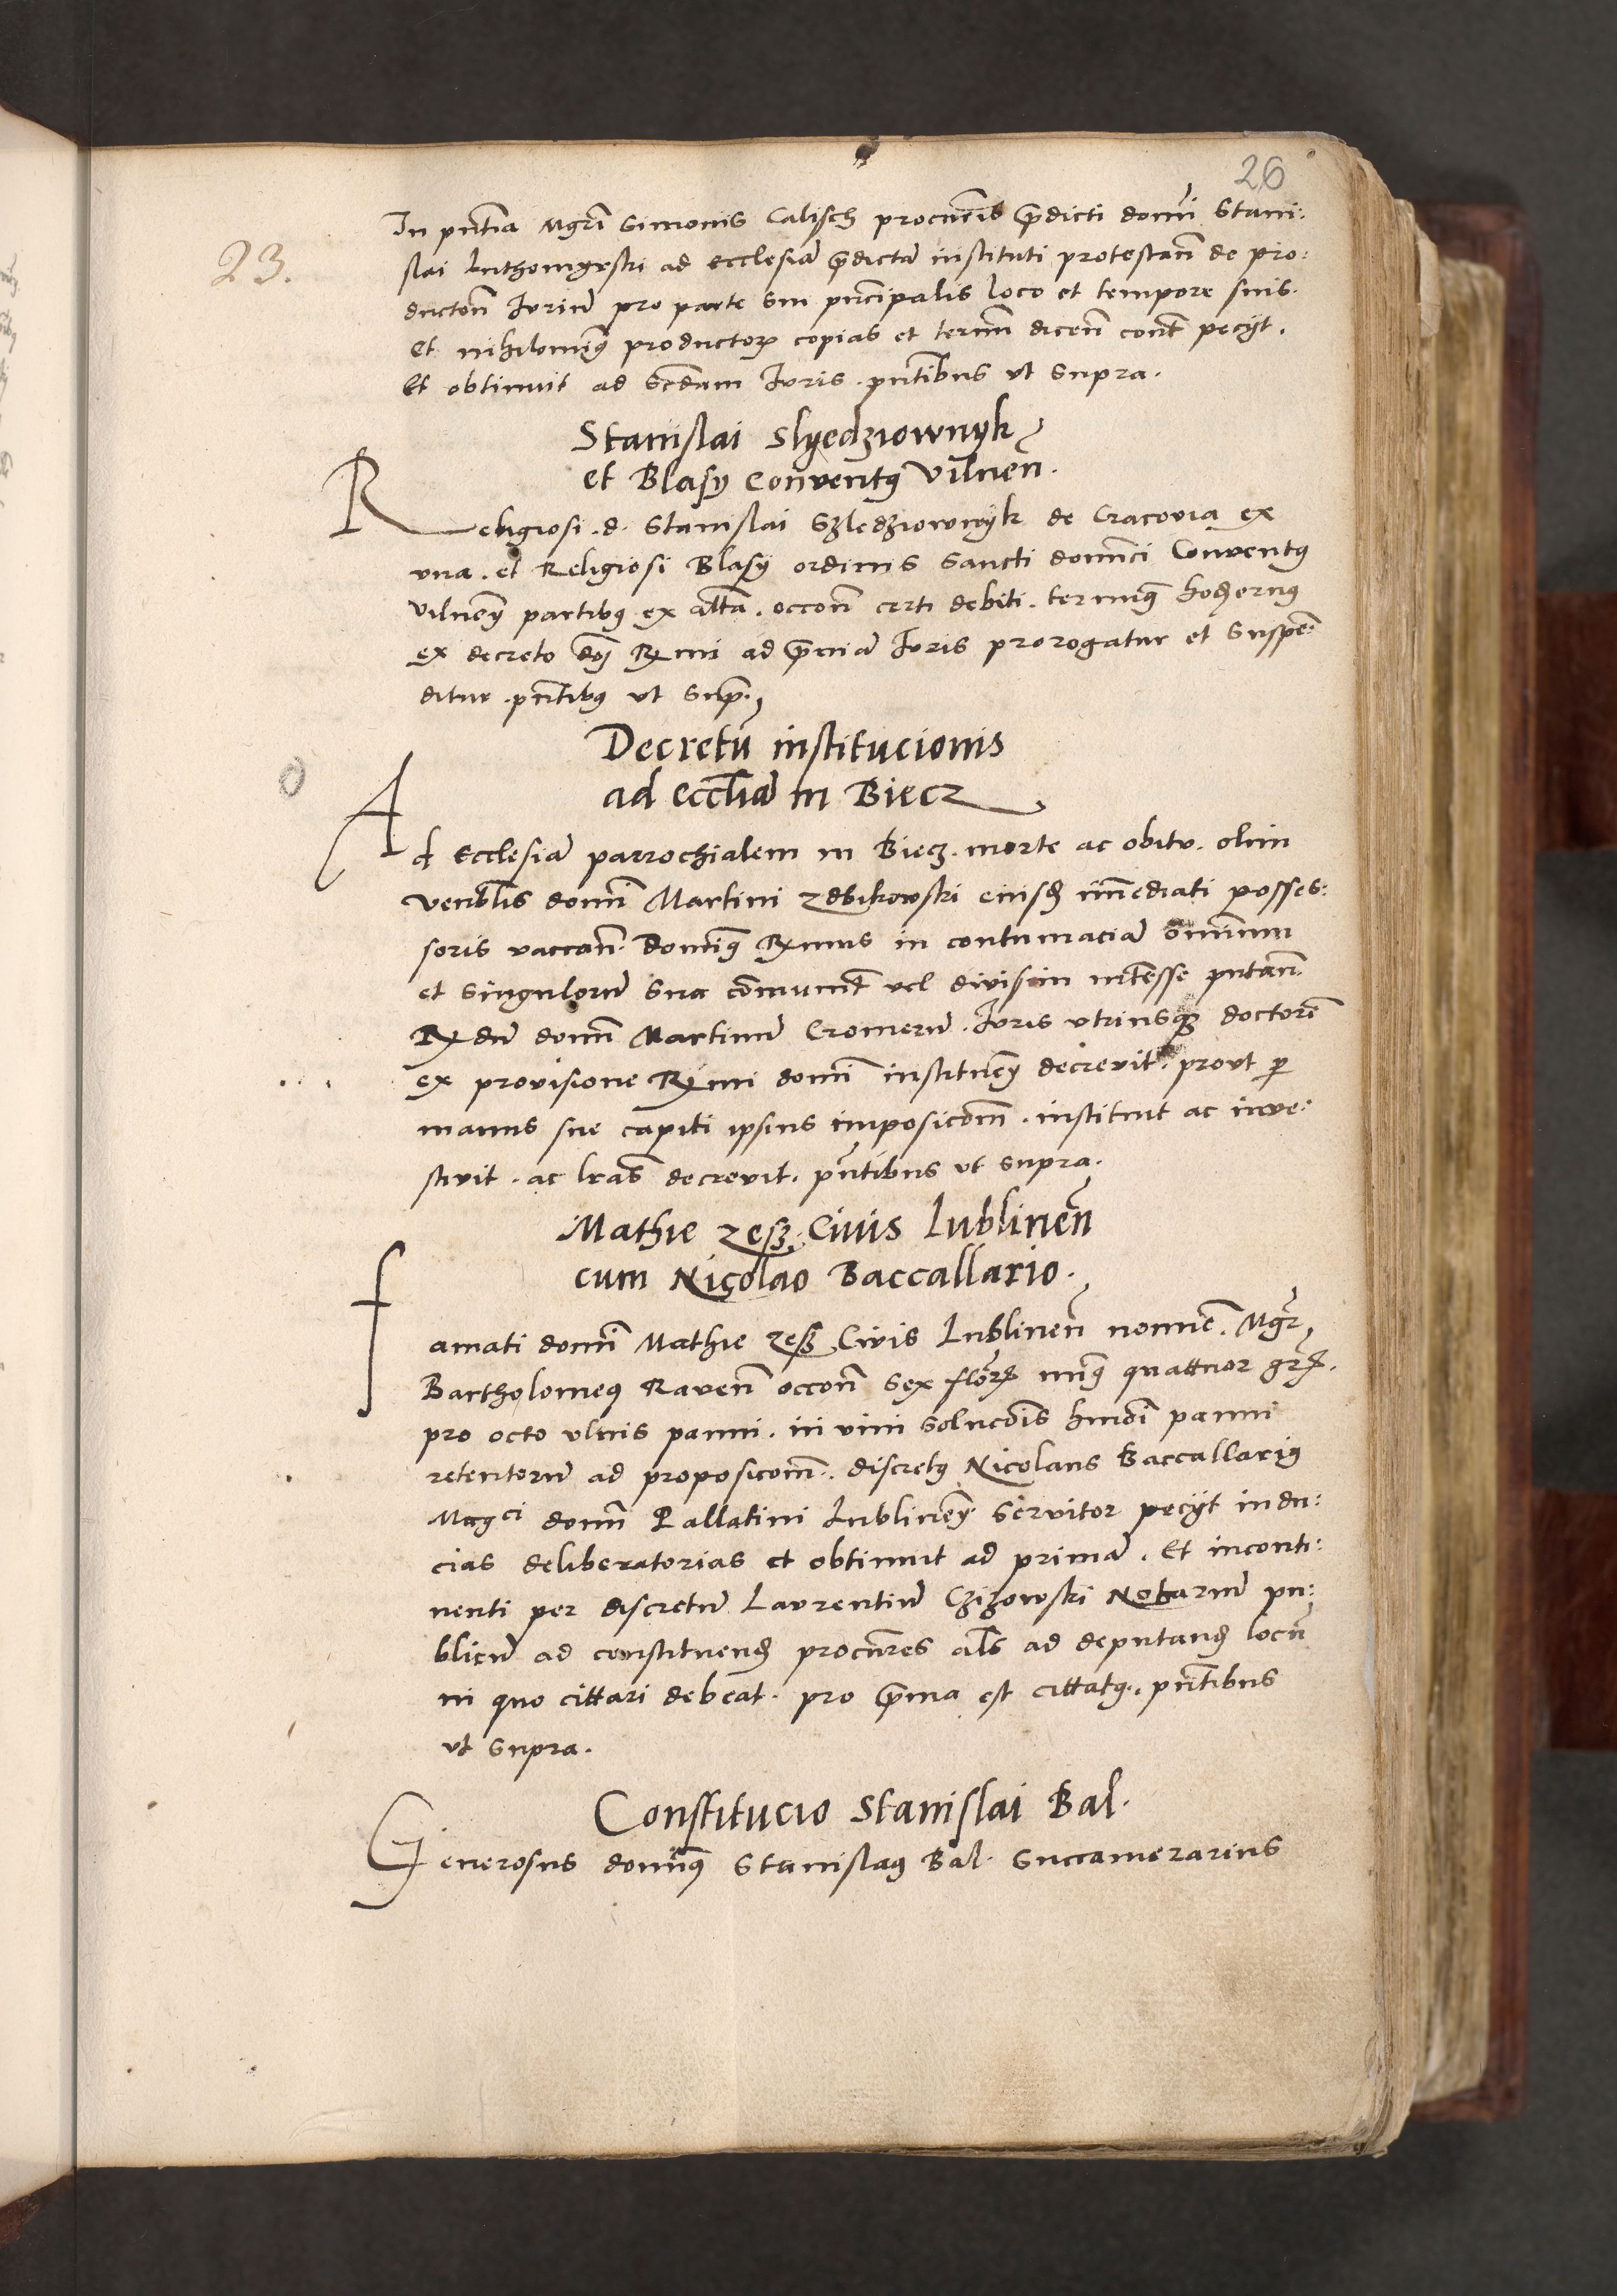 26
23.
In pñtia Mgri Simonis Calisch procuris p̃dicti domĩ Stani:
slai Luthomyrski ad Ecclesiã p̃dictã instituti protestañ de pro:
ductoñ Juriũ pro parte sui pñcipalis loco et tempore suis.
Et nihilominꝰ productoꝝ copias et termĩ diceñ cont̃ pecÿt.
Et obtinuit ad Scdam Juris. pñtibus vt supra.
Stanislai Slyedziownyk
et Blasÿ Conventꝰ Vilneñ.
Religiosi. d. Stanislai Szledziownÿk de Cracovia ex
vna. et Religiosi Blasÿ ordinis Sancti domĩci Conventꝰ
Vilneñ partibꝰ ex alt̃a. occoñ certi debiti. terminꝰ hodiernꝰ
ex decreto doñi Rmi ad p̃mã Juris prorogatur et suspeñ:
ditur. pñtibꝰ vt sup̃.
Decretũ institucionis
ad eccl̃iã in Biecz
Ad Ecclesiã parrochialem in Biecz. morte ac obitu. olim
venblis domĩ Martini Zdbikowski eiusd̃ im̃ediati posses:
soris vaccañ. Dominꝰ Rmus in contumaciã om̃ium
et singulorũ sua com̃unit̃ vel divisim int̃esse putañ.
R dũ domĩ Martinũ Cromerũ. Juris vtriusqꝫ doctorẽ
ex provisione Rmi domĩ institueñ decrevit. provt ꝑ
manus sue capiti ipsius imposicoñ. instituit ac inve:
stivit. ac lr̃as decrevit. pñtibus vt supra.
Mathie Zesz. Civis Lublineñ
cum Nicolao Baccallario.
Famati domĩ Mathie Zesz Civis Lublineñ nomĩe. Mgr̃
Bartholomeꝰ Raveñ occoñ sex flor̃ minꝰ quattuor gr̃.
pro octo vlnis panni. in vim solucoĩs hmõi panni
retentorũ ad proposicoñ. discretꝰ Nicolaus Baccallariꝰ
Magci domĩ Pallatini Lublineñ servitor pecÿt indu:
cias deliberatorias et obtinuit ad primã. Et inconti:
nenti per discretũ Laurentiũ Czizowski Notariũ pu:
blicũ ad constituend̃ procur̃es als ad deputand̃ locũ
in quo cittari debeat. pro p̃ma est cittatꝰ. pñtibus
vt supra.
Constitucio Stanislai Bal.
Generosus dominꝰ Stanislaꝰ Bal. Succamerarius